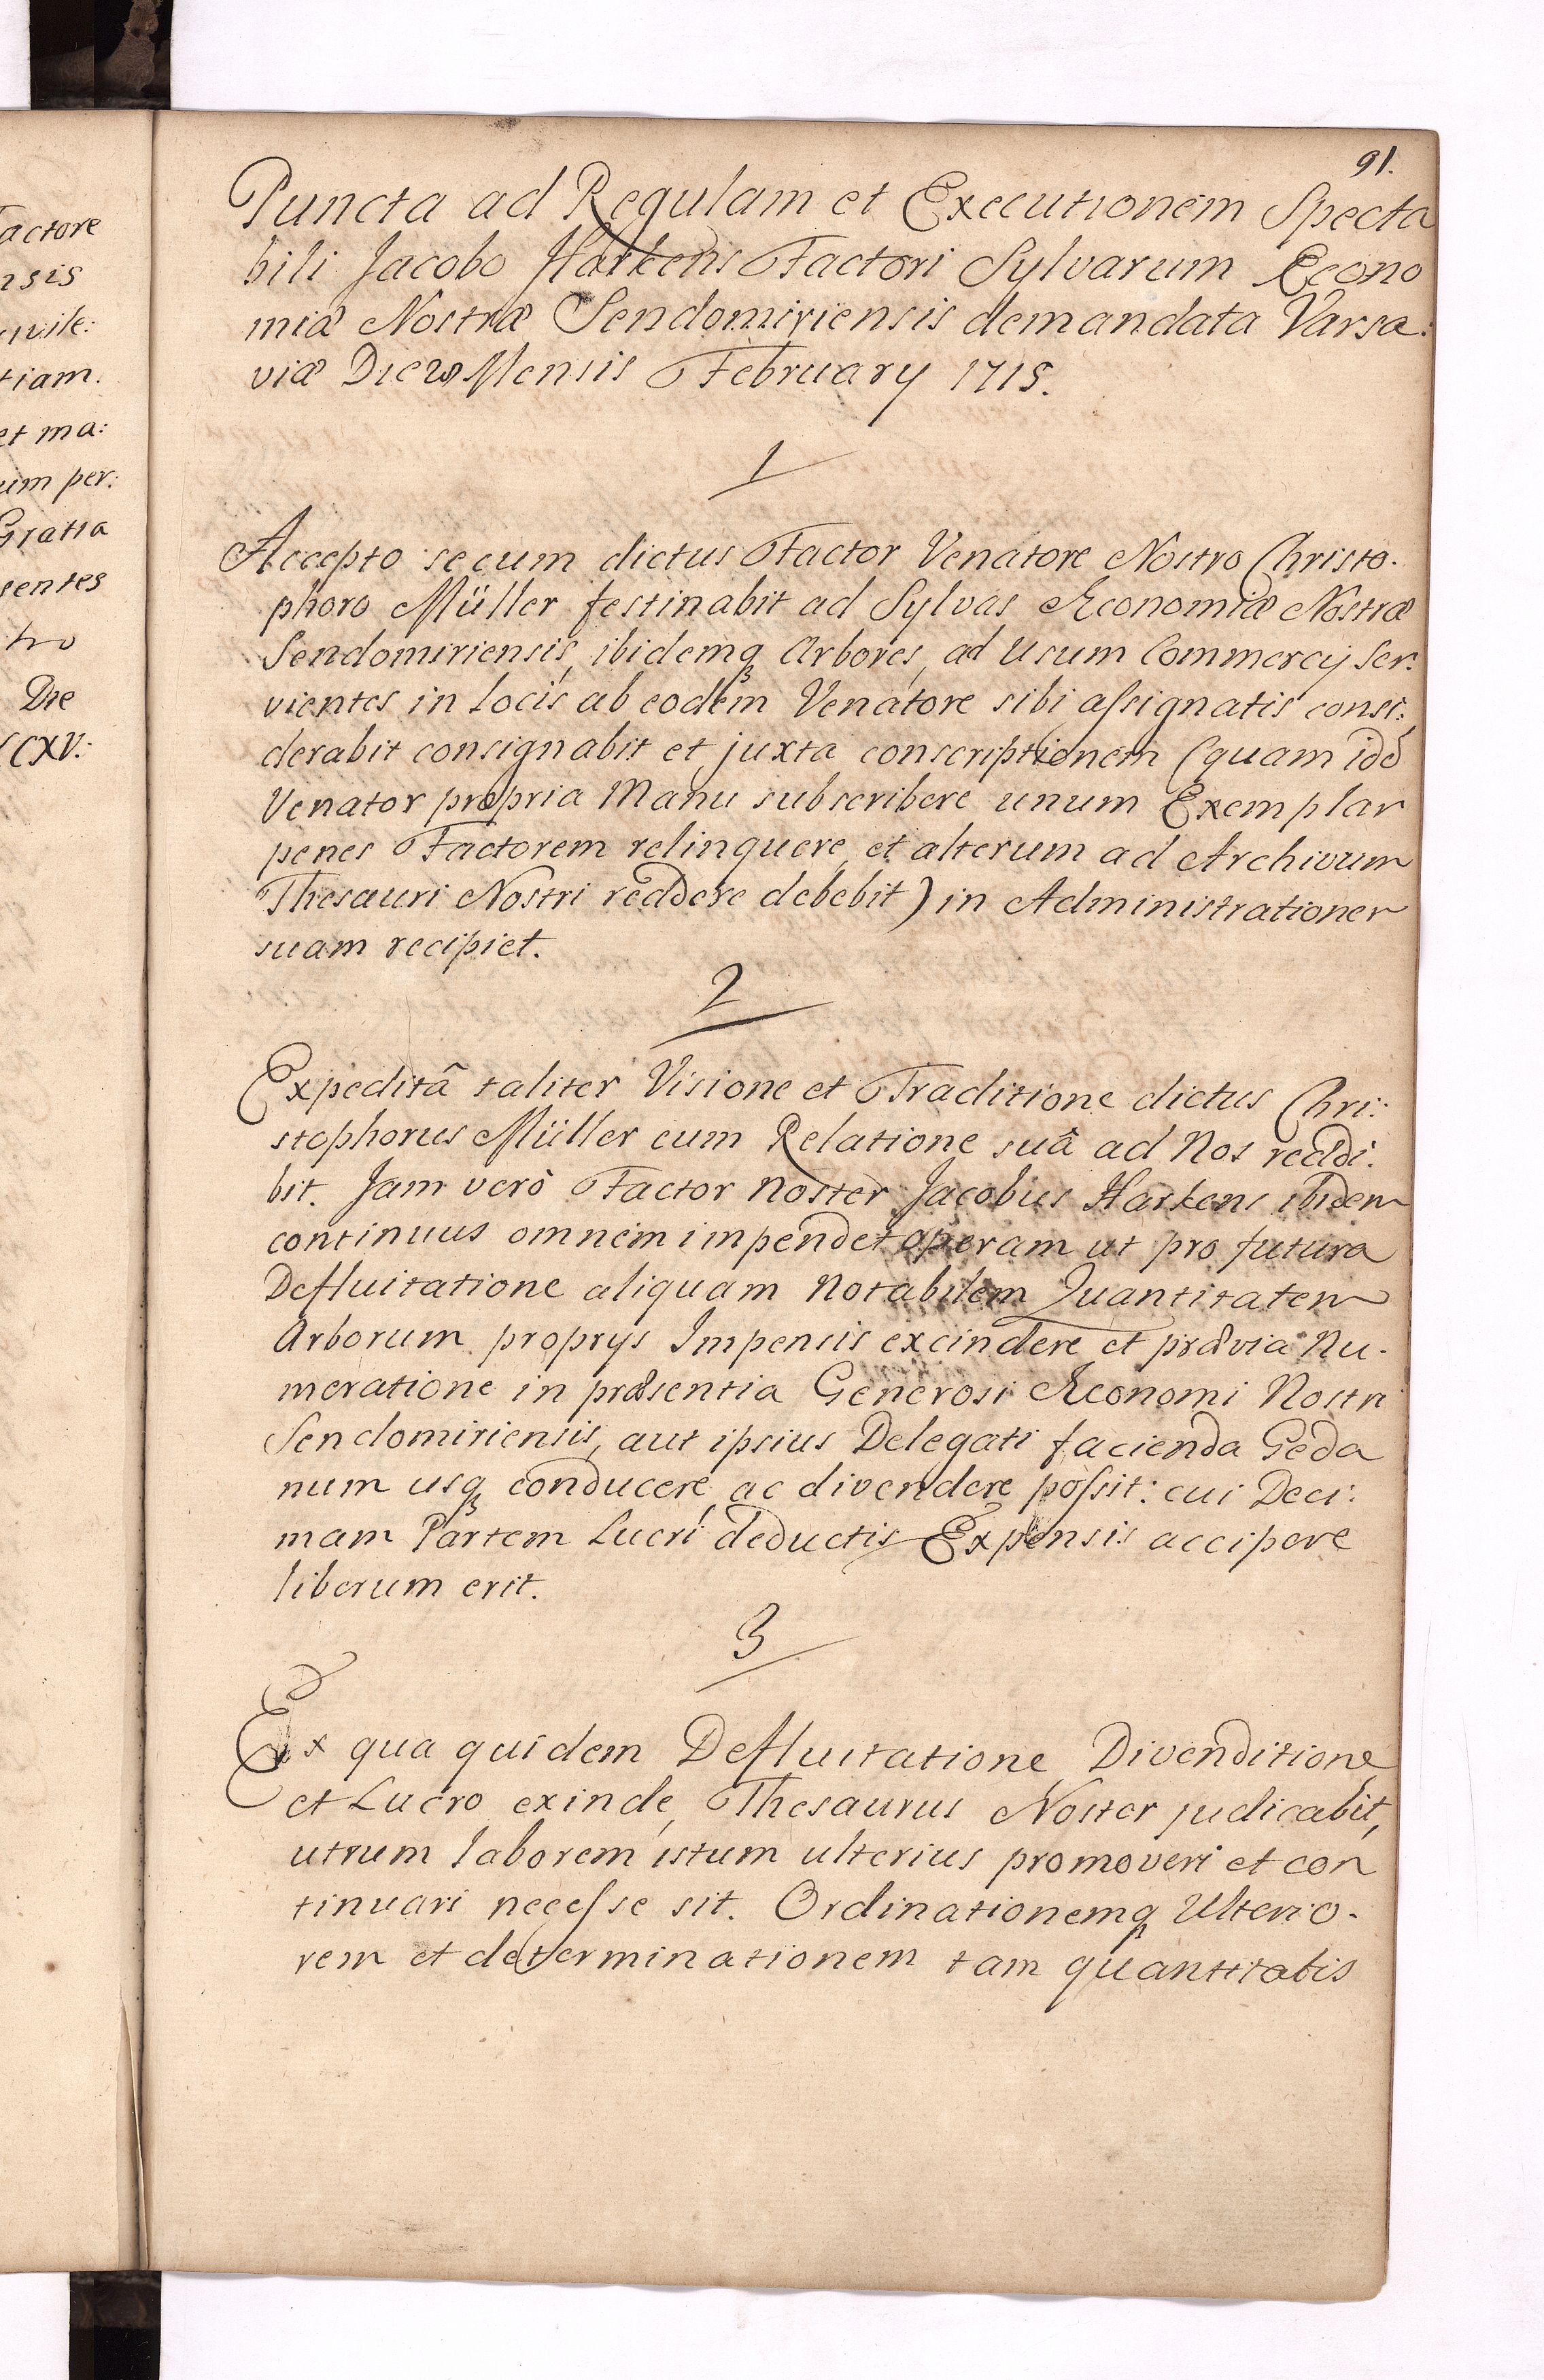 actore
nsis
ivile:
tiam.
et ma:
um per:
Gratia
sentes
Die
CCXV:
91.
Puncta ad Regulam et Executionem Specta
bili Jacobo Harkens Factori Sylvarum Æcono
miæ Nostræ Sendomiriensis demandata Varsa:
viæ Die Mensis February 1715.
1
Accepto secum dictus Factor Venatore Nostro Christo.
phoro Müller festinabit ad Sylvas Æconomiæ Nostræ
Sendomiriensis, ibidemq₃ Arbores, ad Usum Commercij Ser:
vientes in Locis ab eodem Venatore sibi aſsignatis consi:
derabit consignabit et juxta conscriptionem (quam idē
Venator propria Manu subscribere unum Exemplar
penes Factorem relinquere, et alterum ad Archivum
Thesauri Nostri reddere debebit) in Administrationem
suam recipiet.
2
Expeditâ taliter Visione et Traditione dictus Chri:
stophorus Müller cum Relatione suâ ad Nos reddi:
bit. Jam verò Factor Noster Jacobus Harkens ibidem
continuus omnem impendet operam ut pro futura
Defluitatione aliquam Notabilem Quantitatem
Arborum proprys Impensis excindere et prævia Nu.
meratione in præsentia Generosi Æconomi Nostri
Sendomiriensis, aut ipsius Delegati facienda Geda
num usq₃ conducere, ac divendere poſsit: cui Deci:
mam Partem Lucri deductis Expensis accipere
liberum erit.
3
Ex qua quidem Defluitatione Divenditione
et Lucro exinde, Thesaurus Noster judicabit,
utrum laborem istum ulterius promoveri et con
tinuari neceſse sit. Ordinationemq₃ Ulterio.
rem et determinationem tam quantitatis